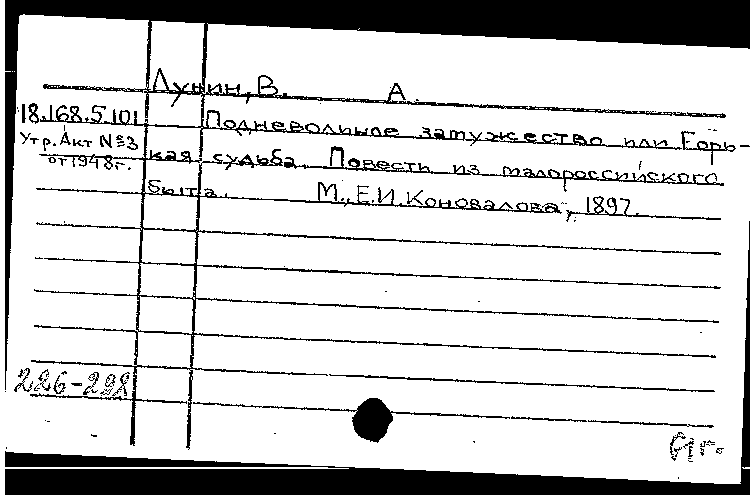 Лунин, В. А.
18.168.5.101 Подневольное замужество или Горь-
Утр. Акт №3
от 1948г. кая судьба. Повесть из малороссийского
быта. М., Е.И. Коновалова, 1897.
226-228
61г.